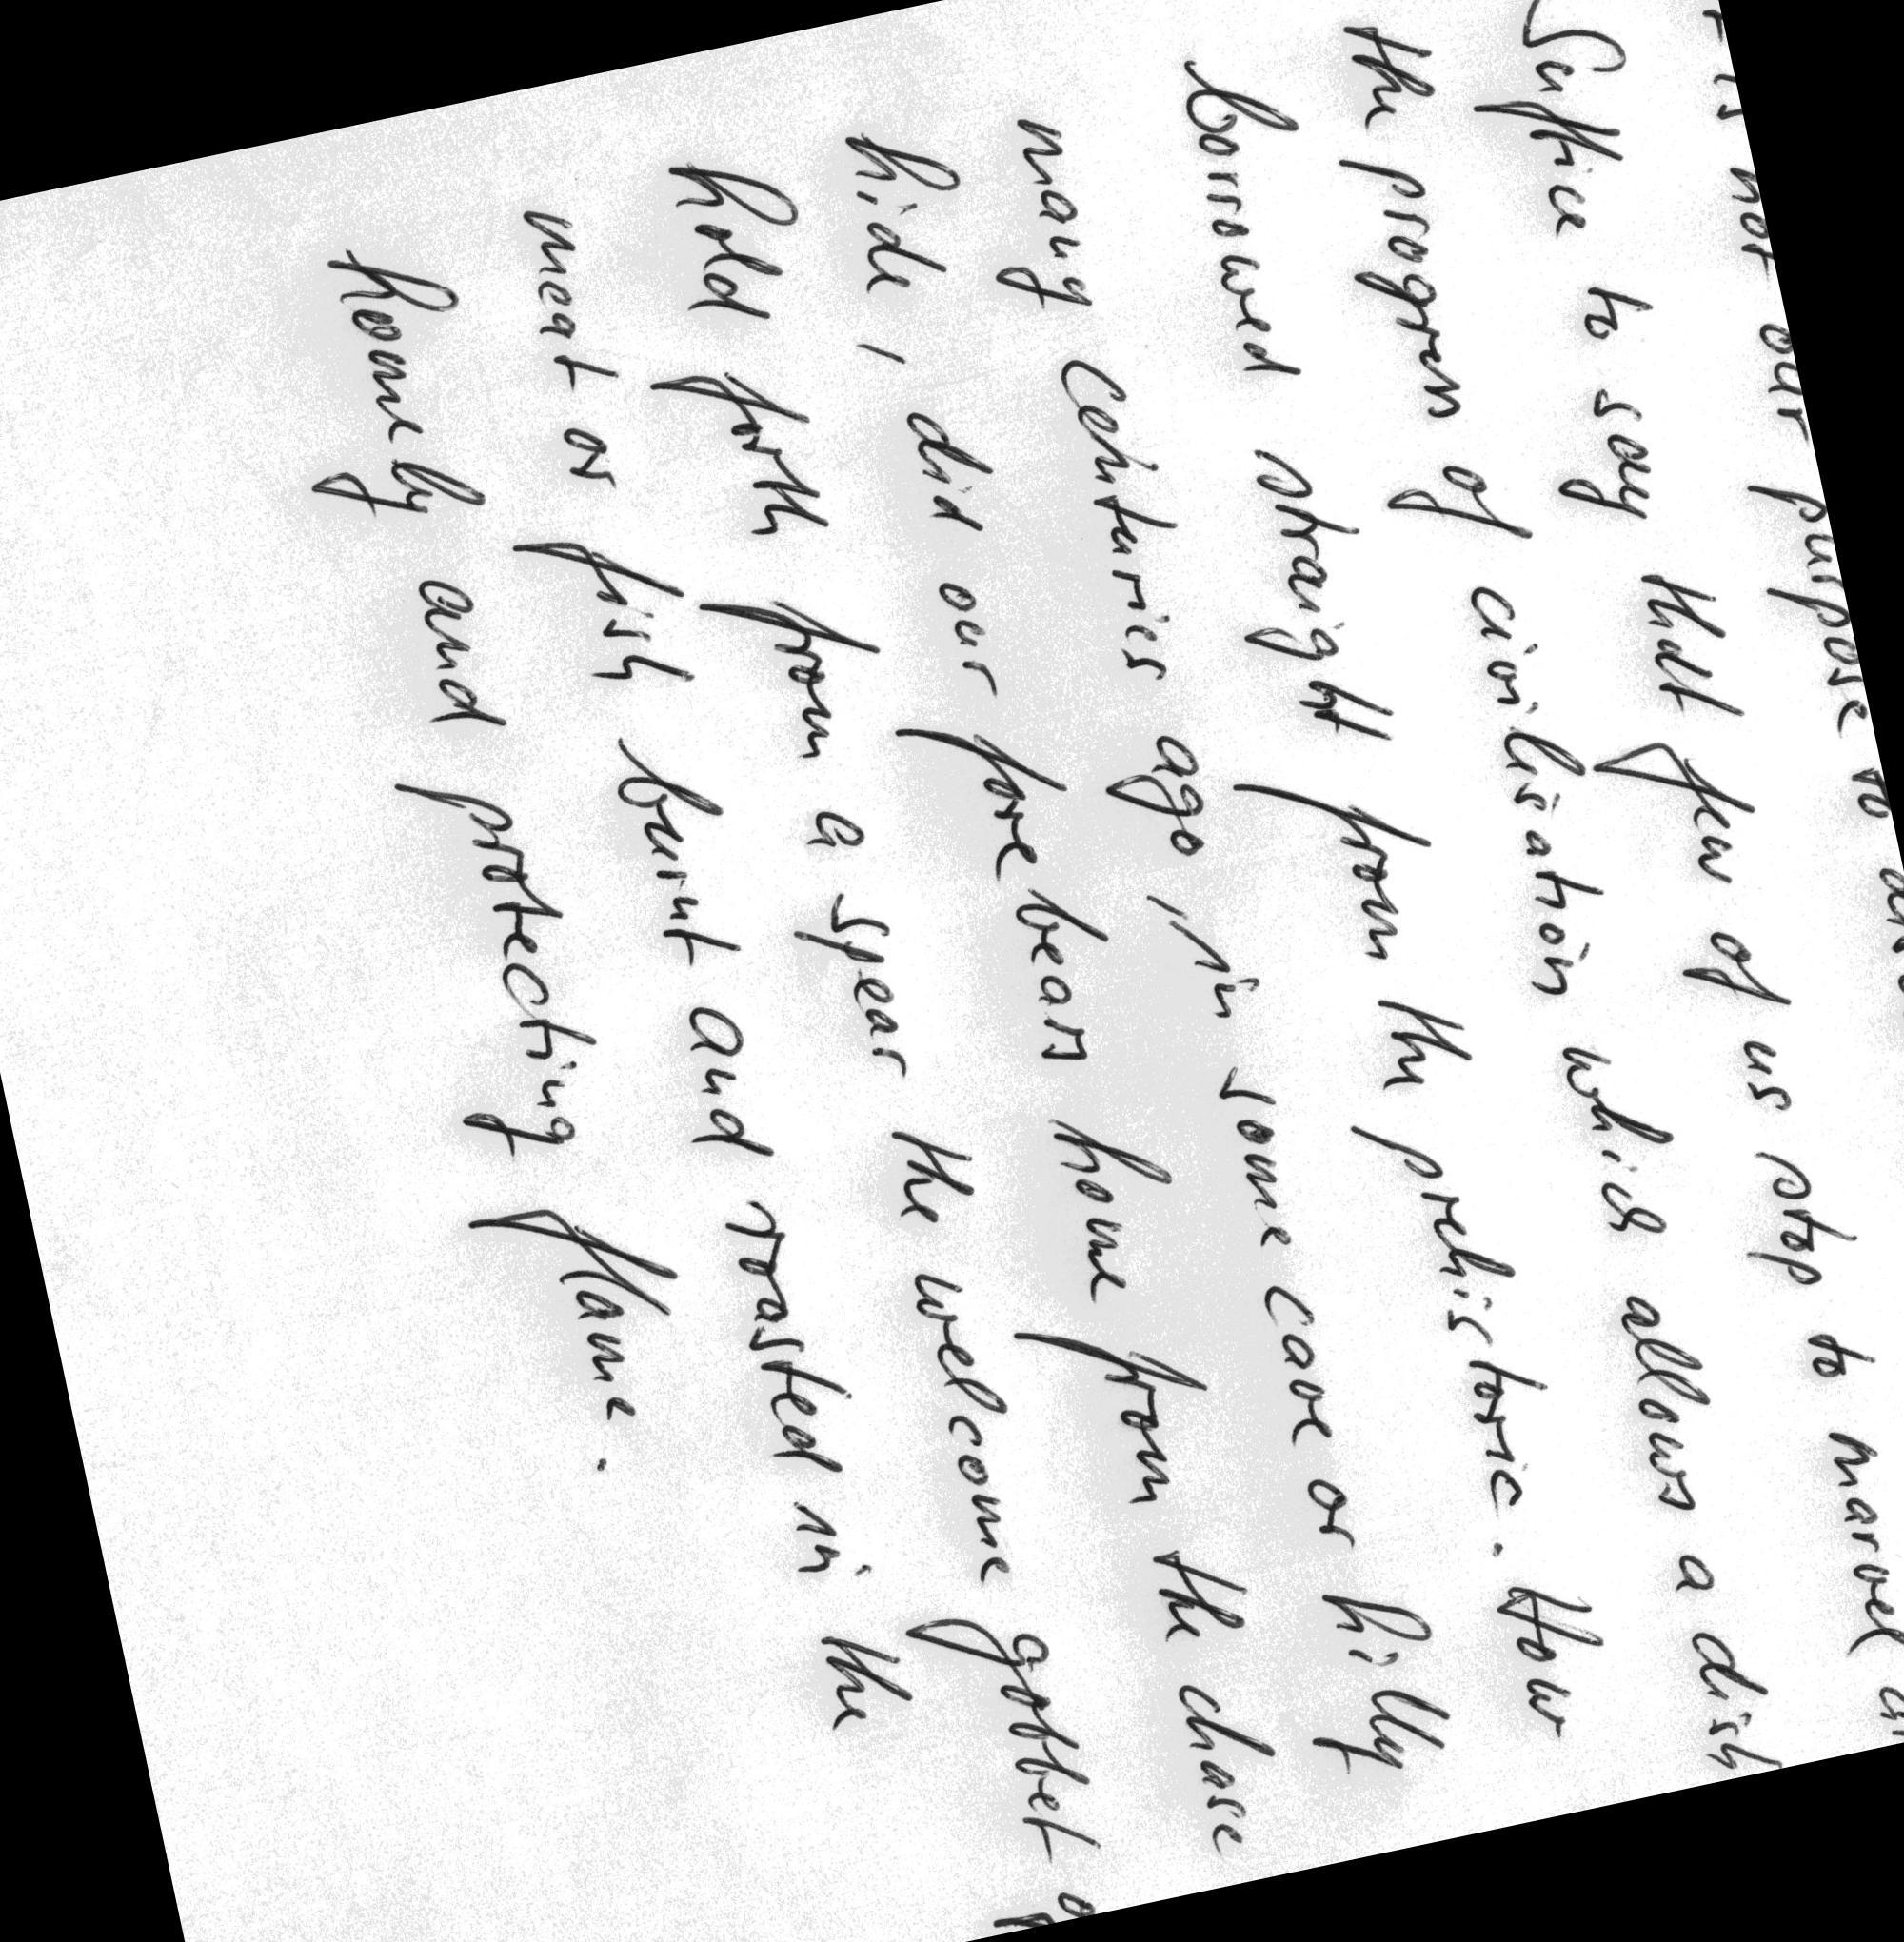 is not our purpose to
Suffice to say that few of us stop to marvel
the progress of civilisation which allows a dish
borrowed straight from the prehistoric. How
many centuries ago, in some cave or hilly
hide, did our forebears home from the chase
hold forth from a spear the welcome gobbet of
meat or fish burnt and roasted in the
homely and protecting flame.